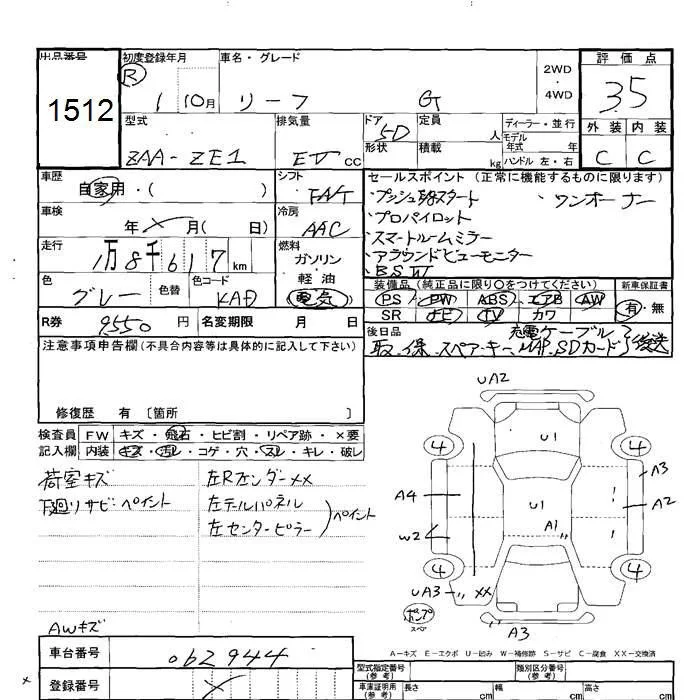 出品番号 初度登録年月 車名・グレード 2WD・4WD 評価点
1512 R 1 10月 リーフ G 35
型式 排気量 ドア 定員 人 ディーラー・並行 外装 内装
ZAA-ZE1 EV cc 5D 形状 積載 kg モデル年式 年 ハンドル 左・右 C C
車歴 自家用・( ) シフト FAT セールスポイント(正常に機能するものに限ります)
・プッシュスタート ・ワンオーナー
車検 年 月( 日) 冷房 AAC ・プロパイロット
・スマートルームミラー
走行 1万8千617km 燃料 ガソリン・軽油 電気 ・アラウンドビューモニター
・BSW
色 グレー 色替 色コード KAD 装備品(純正品に限り○をつけてください) 新車保証書
PS PW ABS エアB AW 有・無
SR ナビ TV カワ
R券 9550円 名変期限 月 日 後日品 充電ケーブル
取.保.スペアーキー.MAP.SDカード 後送
注意事項申告欄(不具合内容等は具体的に記入して下さい)
修復歴 有 〔箇所 〕
検査員 FW キズ・飛石・ヒビ割・リペア跡・×要
記入欄 内装 キズ・汚レ・コゲ・穴・スレ・キレ・破レ
荷室キズ 左Rフェンダー××
下廻リサビ・ペイント 左テールパネル
左センターピラー ペイント
UA2
U1
4 4
A3
A4 U1 A2
W2 A1
4 4
UA3 ××
ポンプ
スペア
A3
AWキズ
A-キズ E-エクボ U-凹み W-補修跡 S-サビ C-腐食 XX-交換済
車台番号 062944 型式指定番号(参考) 類別区分番号(参考)
登録番号 車庫証明用(参考) 長さ cm 幅 cm 高さ cm